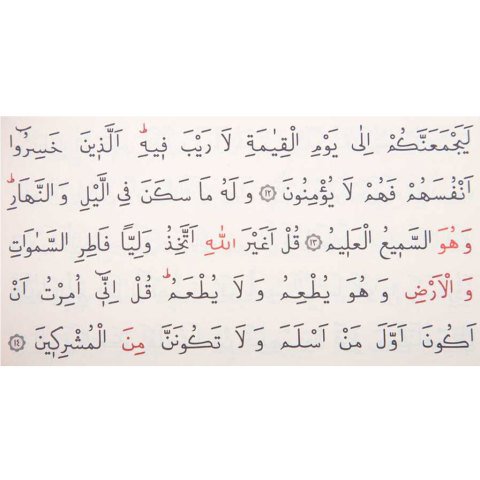 لَيَجْمَعَنَّكُمْ اِلٰى يَوْمِ الْقِيٰمَةِ لَا رَيْبَ فٖيهِؕ اَلَّذٖينَ خَسِرُٓوا
اَنْفُسَهُمْ فَهُمْ لَا يُؤْمِنُونَ ١٢ وَلَهُ مَا سَكَنَ فِي الَّيْلِ وَالنَّهَارِؕ
وَهُوَ السَّمٖيعُ الْعَلٖيمُ ١٣ قُلْ اَغَيْرَ اللّٰهِ اَتَّخِذُ وَلِيًّا فَاطِرِ السَّمٰوَاتِ
وَالْاَرْضِ وَهُوَ يُطْعِمُ وَلَا يُطْعَمُؕ قُلْ اِنّٖٓي اُمِرْتُ اَنْ
اَكُونَ اَوَّلَ مَنْ اَسْلَمَ وَلَا تَكُونَنَّ مِنَ الْمُشْرِكٖينَ ١٤